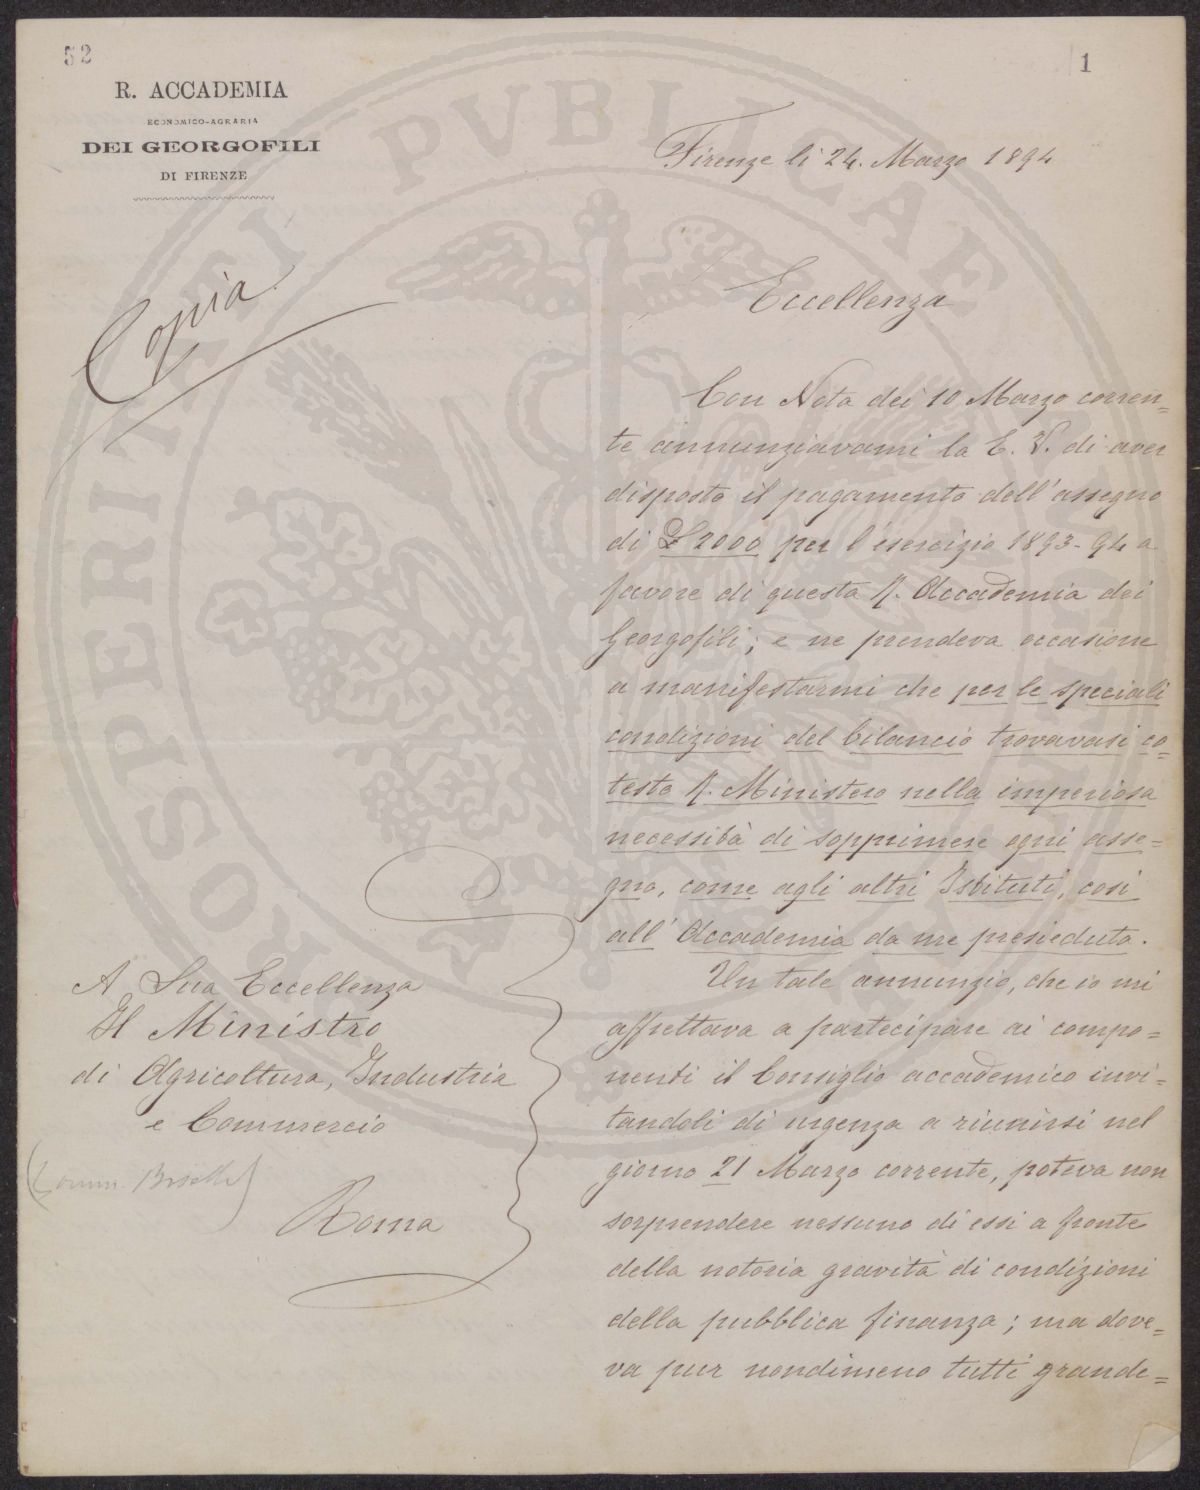 52
1
R. ACCADEMIA
ECONOMICO-AGRARIA
DEI GEORGOFILI
DI FIRENZE
Firenze li 24. Marzo 1894
Copia
Eccellenza
Con Nota dei 10 Marzo corren=
te annunziavami la E. V. di aver
disposto il pagamento dell'assegno
di £ 2000 per l'esercizio 1893-94 a
favore di questa R. Accademia dei
Georgofili; e ne prendeva occasione
a manifestarmi che per le speciali
condizioni del bilancio trovavasi co=
testo R. Ministero nella imperiosa
necessità di sopprimere ogni asse=
gno, come agli altri Istituti, così
all'Accademia da me presieduta.
Un tale annunzio, che io mi
affrettava a partecipare ai compo=
nenti il Consiglio accademico invi=
tandoli di urgenza a riunirsi nel
giorno 21 Marzo corrente, poteva non
sorprendere nessuno di essi a fronte
della notoria gravità di condizioni
della pubblica finanza; ma dove=
va pur nondimeno tutti grande=
A Sua Eccellenza
Il Ministro
di Agricoltura, Industria
e Commercio
(Comm. Boselli)
Roma
PROSPERITATI PUBLICAE